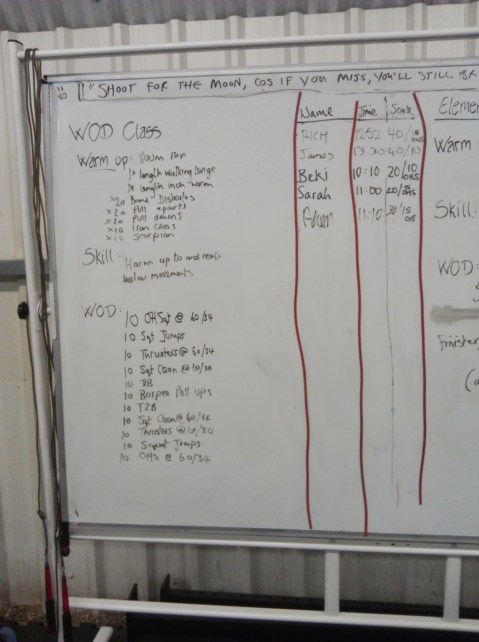 " SHOOT FOR THE MOON, COS IF YOU MISS, YOU'LL STILL BR
WOD Class
Warm up: 800m run
1x length walking lunge
1x length inch worm
x20 Band Dislocates
x20 Pull aparts
x20 Pull downs
x10 Iron Cross
x10 Scorpion
Skill: Warm up to and
below movements
WOD: 10 OHSqt @ 60/34
10 Sqt Jumps
10 Thrusters @ 60/34
10 Sqt Clean @ 60/34
10 T2B
10 Burpee Pull ups
10 T2B
10 Sqt Clean @ 60/34
10 Thrusters @ 60/34
10 Squat Jumps
10 OHS @ 60/34
Name Time Scale
RICH 12:52 40/
James 40/10
Beki 10:10 20/10
Sarah 11:00 20/
Adam 11:10 30/15
Elemen
Warm
Skill:
WOD:
Finisher